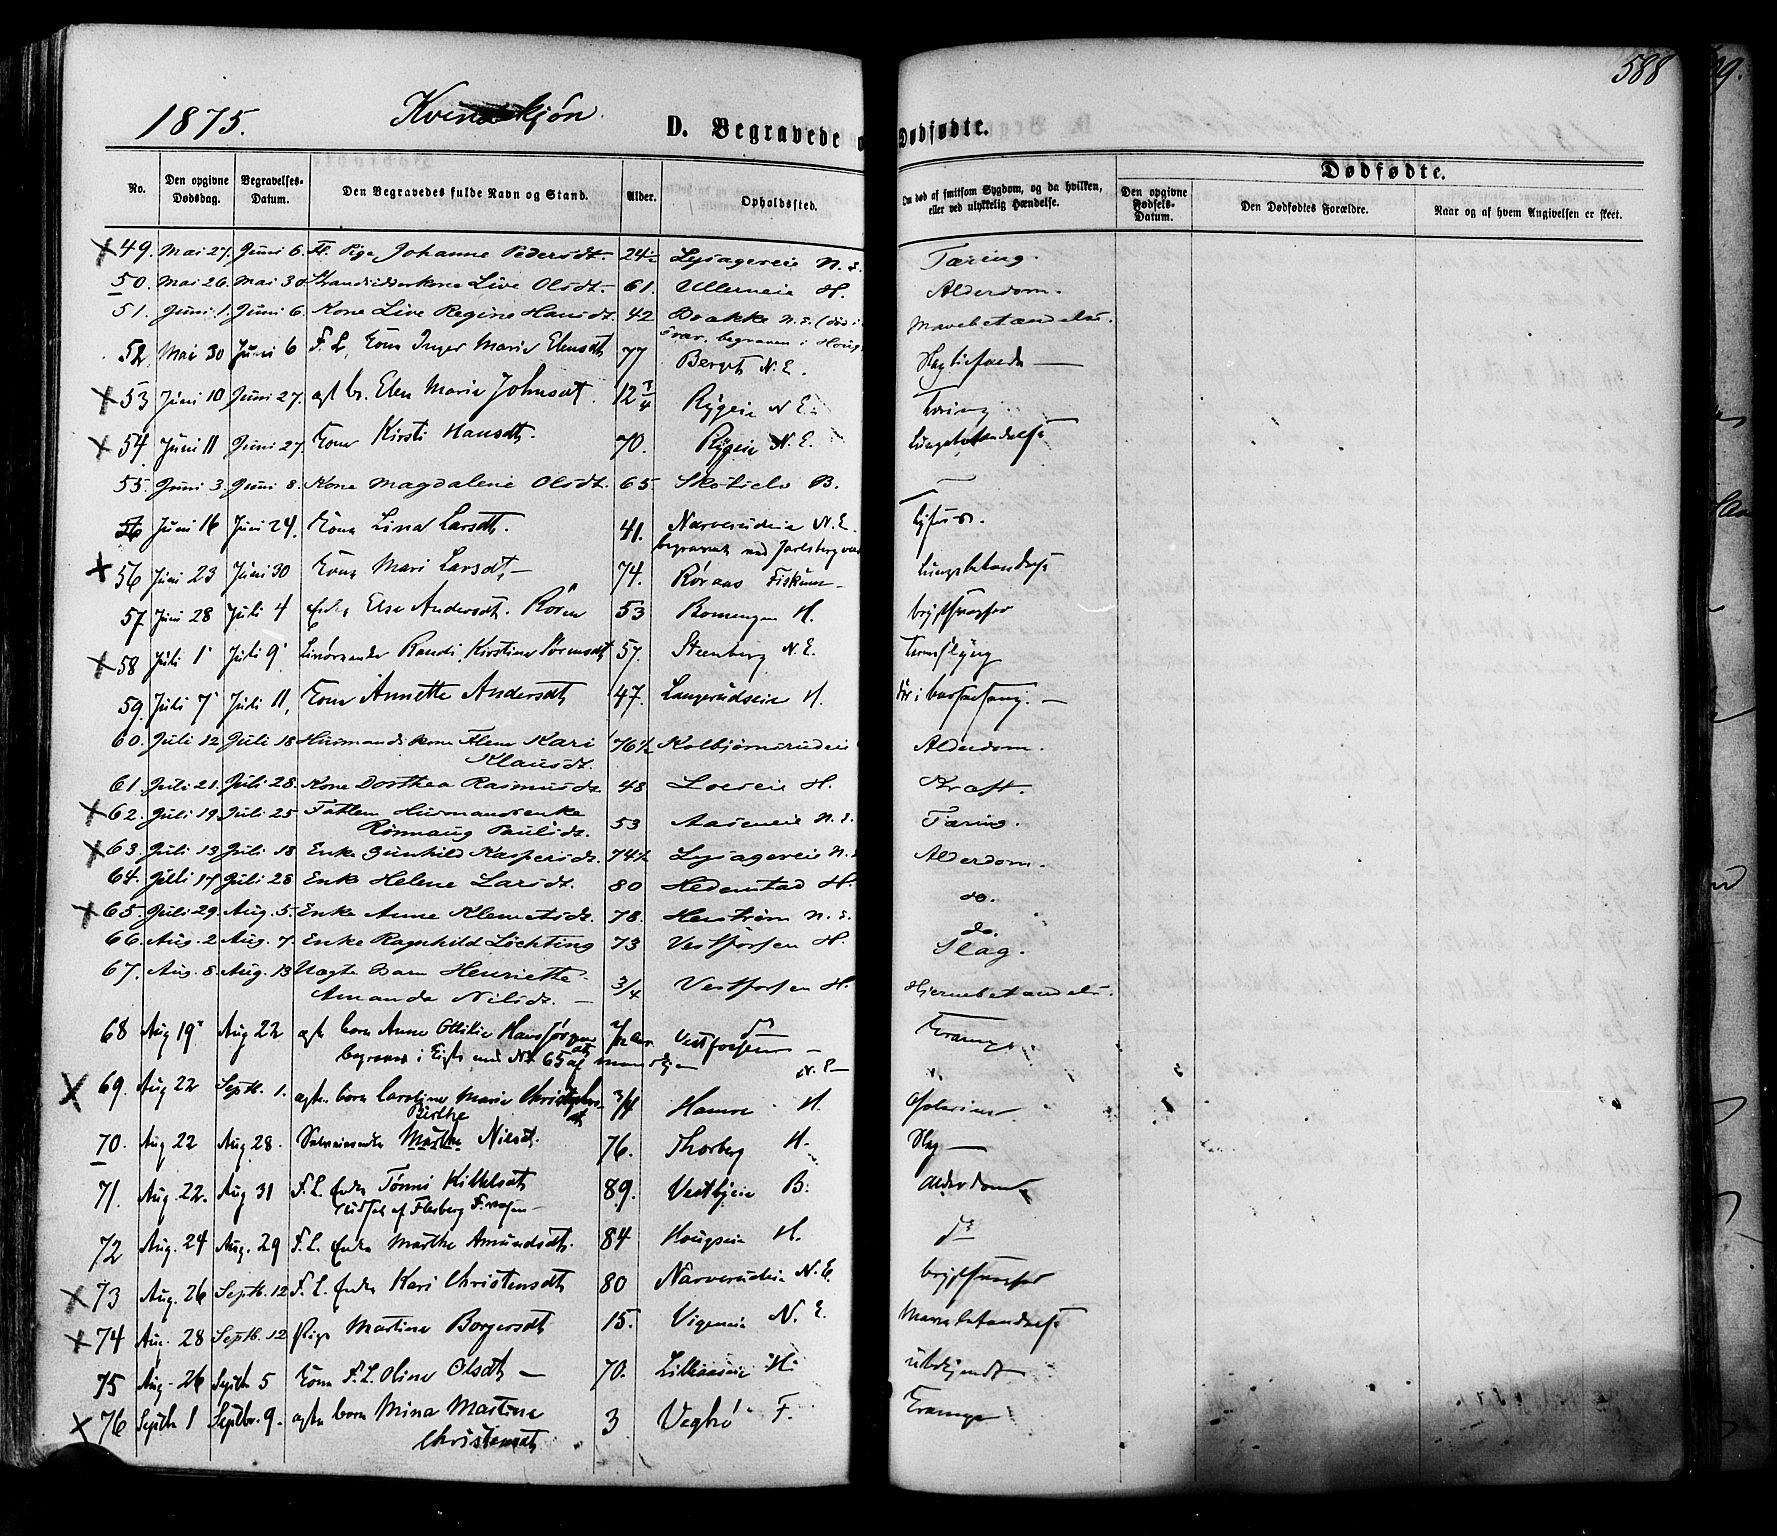 588
1875. Kvindekjøn.
D. Begravede o Dødfødte.
Dødfødte.
No. Den opgivne Dødsdag. Begravelses-Datum. Den Begravedes fulde Navn og Stand. Alder. Opholdssted. Om død af smitsom Sygdom, og da hvilken, eller ved ulykkelig Hændelse. Den opgivne Fødsels-Datum. Den Dødfødtes Forældre. Naar og af hvem Angivelsen er skeet.
49. Mai 27. Juni 6. Fl. Pige Johanne Pedersdt. 24½ Lysagereie N. E. Tæring.
50. Mai 26. Mai 30 Live Olsdt. 61. Ullerneie H. Alderdom.
51. Juni 1. Juni 6. Kone Live Regine Hansdt. 42 Bakke N. E. (død i Mavebetændelse.
begraven i Houg
52 Mai 30 Juni 6 F. L. Kone Inger Marie Elensdt 77 Berget N. E.
53 Juni 10 Juni 27. ægt b. Elen Marie Johnsdt. 12 3/4 Rygeie N E. Tæring
54. Juni 11 Juni 27. Kone Kirsti Hansdt. 70. Rygeie N. E. Lungebetændelse
55. Juni 3. Juni 8. Kone Magdalene Olsdt. 65. Skotselv B. —
56 Juni 16 Juni 24. Kone Lina Larsdt. 41. Narverudeie N. E. Tyfus.
begravet ved Jarlsberg
56 Juni 23 Juni 30 Kone Mari Larsdt. — 74. Røraas Fiskum — Lungebetændelse
57 Juni 28 Juli 4 Enke Else Andersdt. Røren 53 Bomengen H. Brystsvaghed
58 Juli 1 Juli 9 Randi Kirstine Sørensdt 57. Steenberg N. E.
59. Juli 7 Juli 11. Kone Annette Andersdt 47. Langerudseie H. død i barselseng. —
60. Juli 12 Juli 18 Husmandskone Kari Klausdt. 76½ Kolbjørnsrudeie Alderdom.
61. Juli 21. Juli 28. Kone Dorthea Rasmusdt 48 Loeseie H. Kræft.
62. Juli 19 Juli 25 Fattem Husmandsenke Rønnaug Paulsdt. 53 Aaseneie N. E. Tæring.
63. Juli 13 Juli 18 Enke Gunhild Kaspersdt. 74½ Lysagereie N. Alderdom.
64. Juli 17 Juli 28 Enke Helene Larsdt. 80 Hedenstad H. do.
65. Juli 29. Aug. 5. Enke Anne Klemetsdt. 78. N. E. do.
66. Aug. 2 Aug. 7. Enke Ragnhild Lichting 73 Vestfossen H. Slag.
67. Aug. 8 Aug. 13 Uægte Barn Henriette Amanda Nilsdt. — 3/4 Vestfossen H. Hjernebetændelse.
68 Aug 19 Aug 22 ægt barn Anne Ottilie Hans Jørgen Vestfossen Krampe
begravet i Kiste med No 65 af mandkjøn N. E.
69. Aug 22 Septb. 1. ægte barn Caroline Marie Christophersdt 3/4 Hamre H.
70. Aug 22 Aug 28. Berthe Marthe Nilsdt. 76. Thorberg H. Slag —
71. Aug 22. Aug 31 F. L. Enke Tønni Kittelsdt 89. Vestbyeie B. Alderdom
Flesberg
72 Aug. 24 Aug. 29 F. L. Enke Marthe Amundsdt. 84 Hougseie H. do
73 Aug. 26 Septb. 12 F. L. Enke Kari Christensdt 80 Narverudeie N. E. Brystsvaghed
74 Aug. 28 Septb. 12 Pige Martine Borgersdt 15. Vigeneie N. E. Mavebetændelse
75 Aug. 26 Septb 5 Kone F. L. Oline Olsdt — 70. Lilleaaseie H. ubekjendt
76 Septb 1 Septbr. 9. ægte barn Mina Martine Christensdt 3 F. Krampe